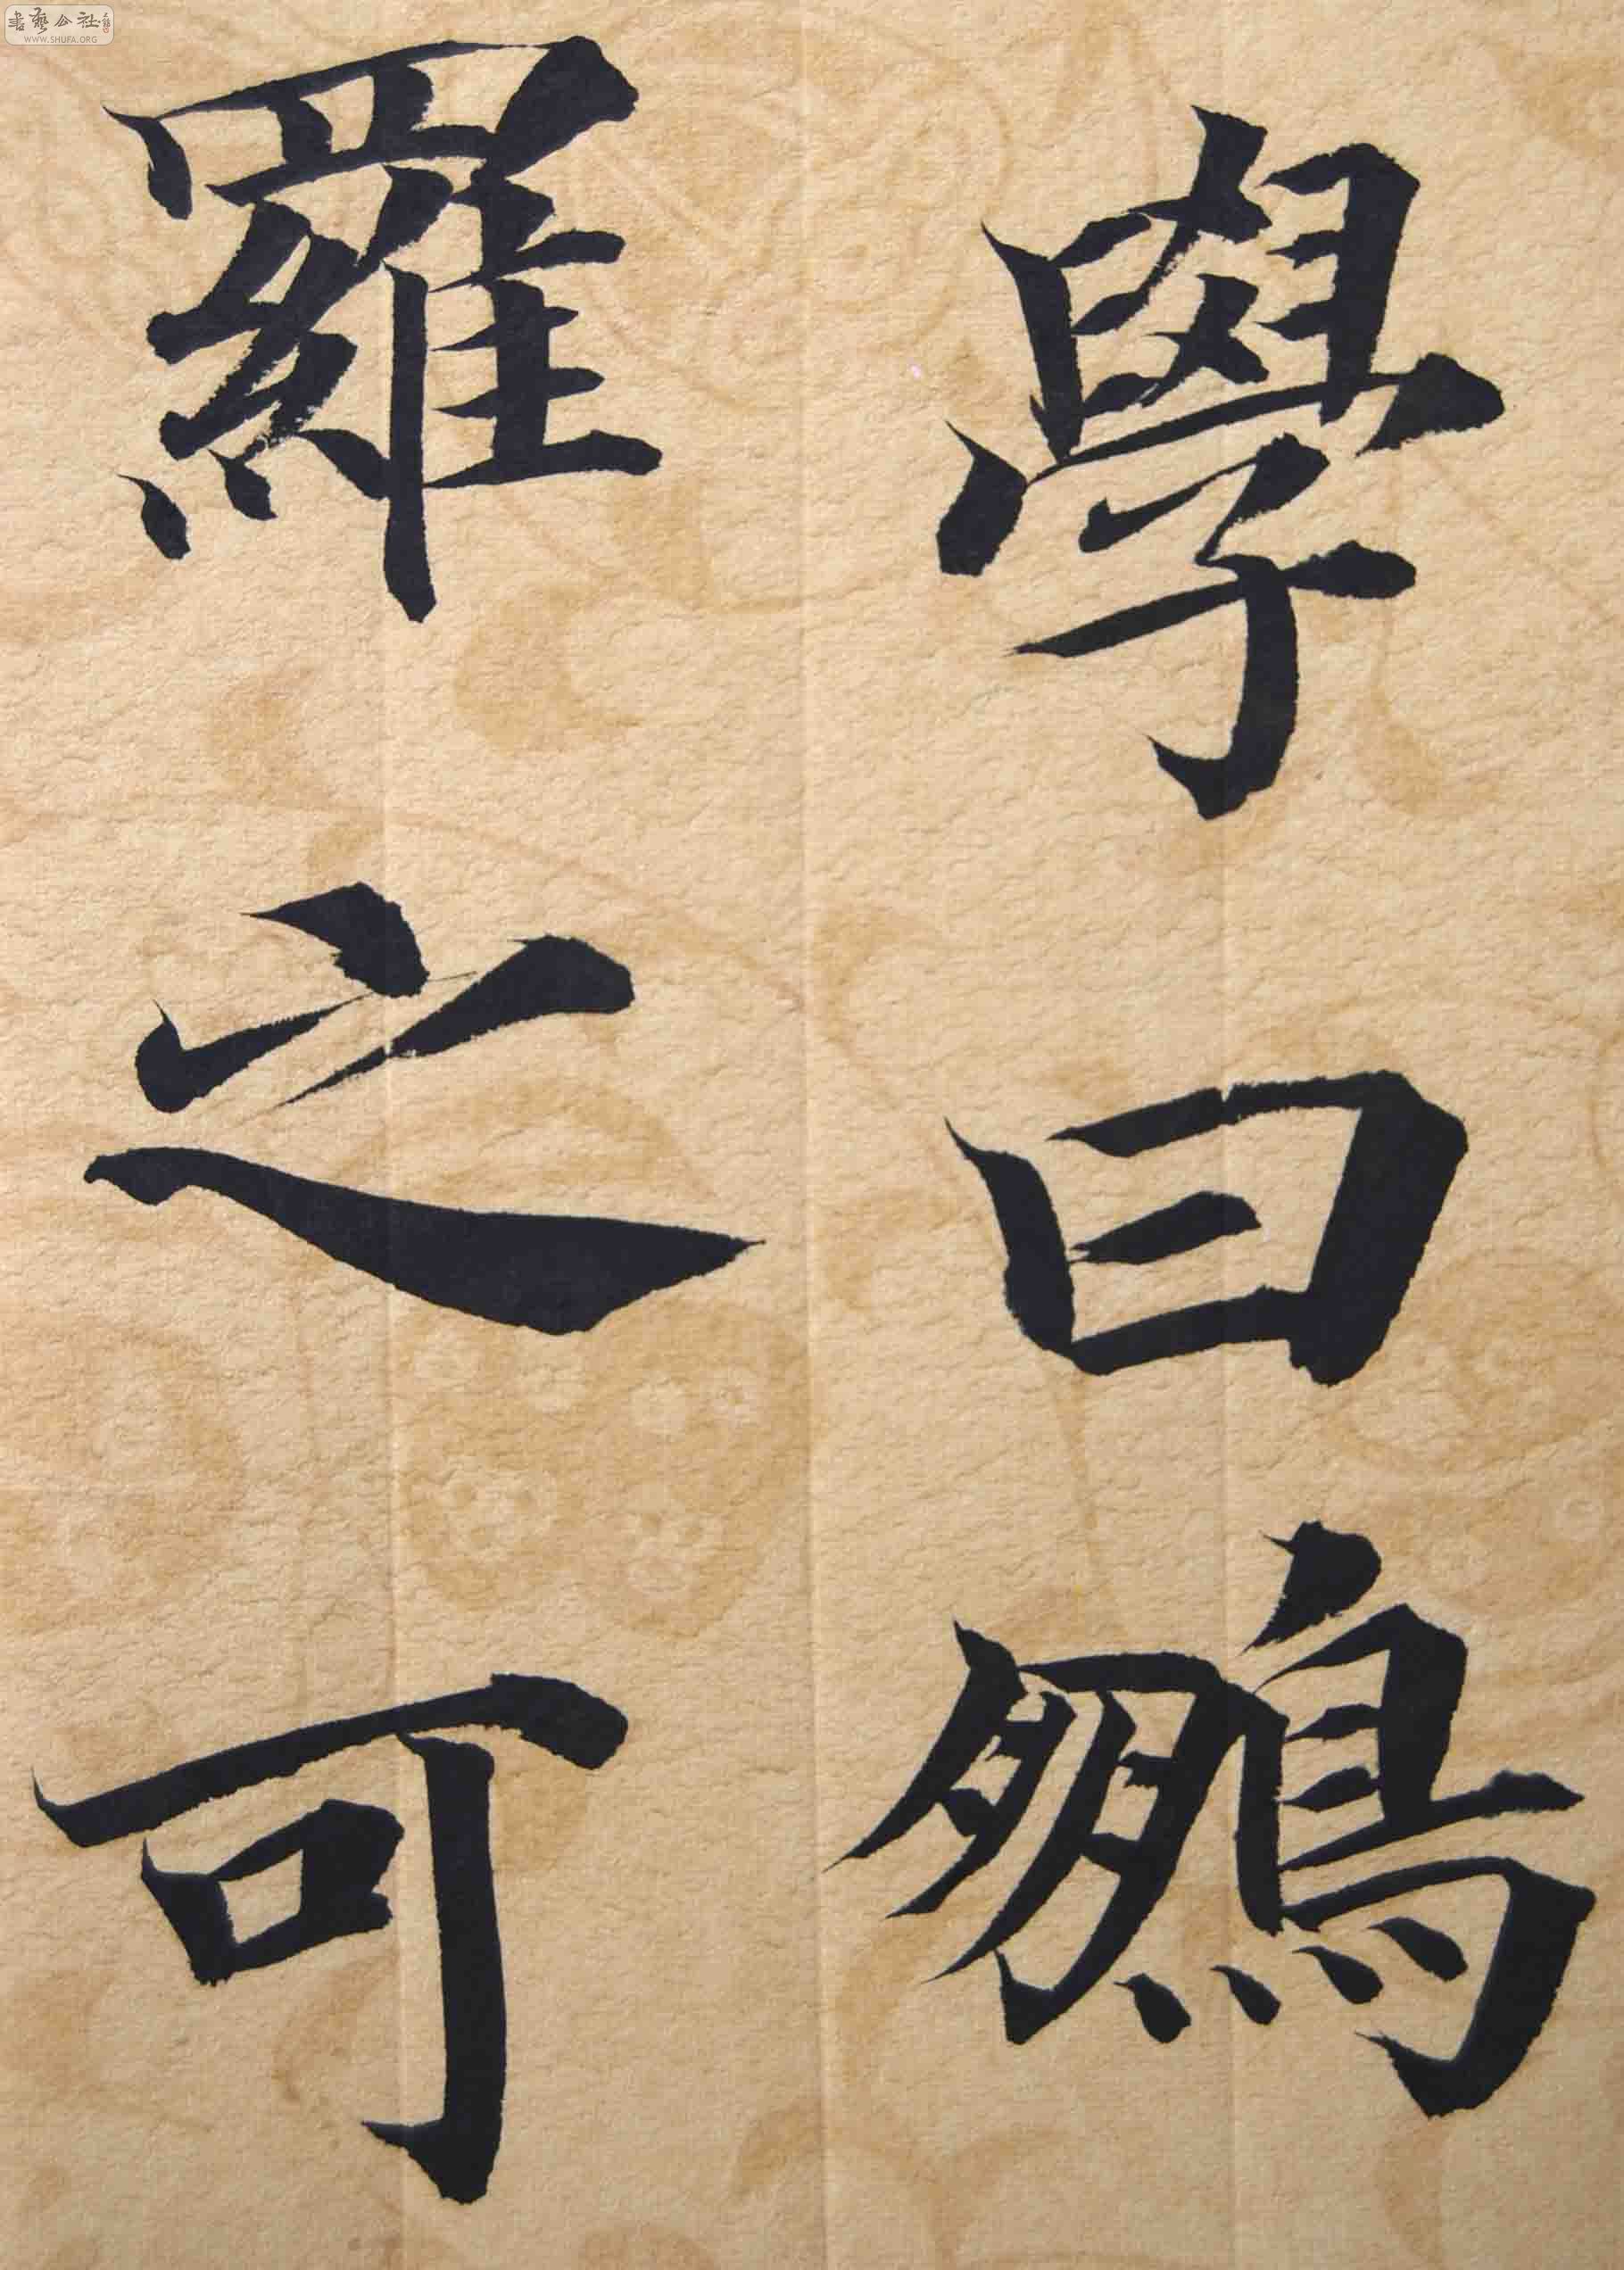 學曰
羅之可
書藝公社
WWW.SHUFA.ORG